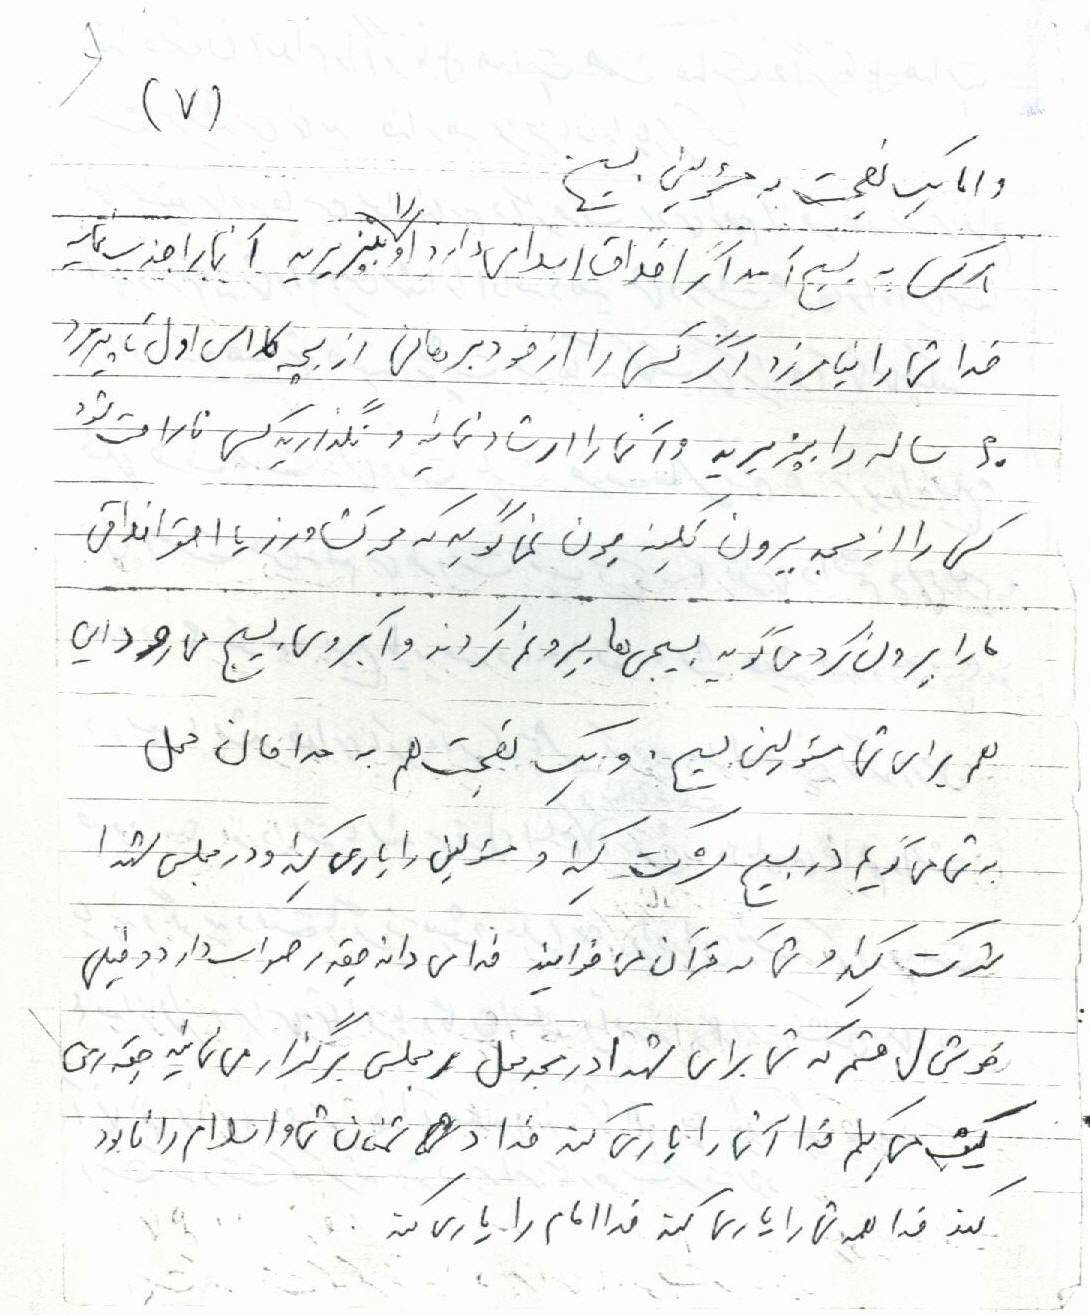 (۷)
و اما یک نصیحت به مسئولین بسیج
هر کس به بسیج آمد اگر اخلاق اسلامی دارد او را بپذیرید آنها را جذب نمائید
خدا شما را نیامرزد اگر کسی را از خود برهانی از بچه کلاس اول تا پیرمرد
۶۰ ساله را بپذیرید و آنها را ارشاد نمائید و نگذارید کسی ناراحت شود
کسی را از مسجد بیرون نکنید چون نمی‌گوید که محمد کشاورز یا اصغر اخلاقی
ما را بیرون کرد می‌گوید بسیجی‌ها بیرونم کردند و آبروی بسیج می‌رود این
هم برای شما مسئولین بسیج. و یک نصیحت هم به مداحان محل
به شما می‌گویم در بسیج شرکت کنید و مسئولین را یاری کنید و در مجلس شهدا
شرکت کنید و شما که قرآن می‌خوانید خدا می داند چقدر صواب دارد و خیلی
خوشحال هستم که شما برای شهدا در مسجد محل مجلس برگزار می‌نمائید چقدر من
کیف می‌کنم خدا آنها را یاری کند خدا دشمنان شما و اسلام را نابود
کند خدا همه شما را یاری کند خدا امام را یاری کند